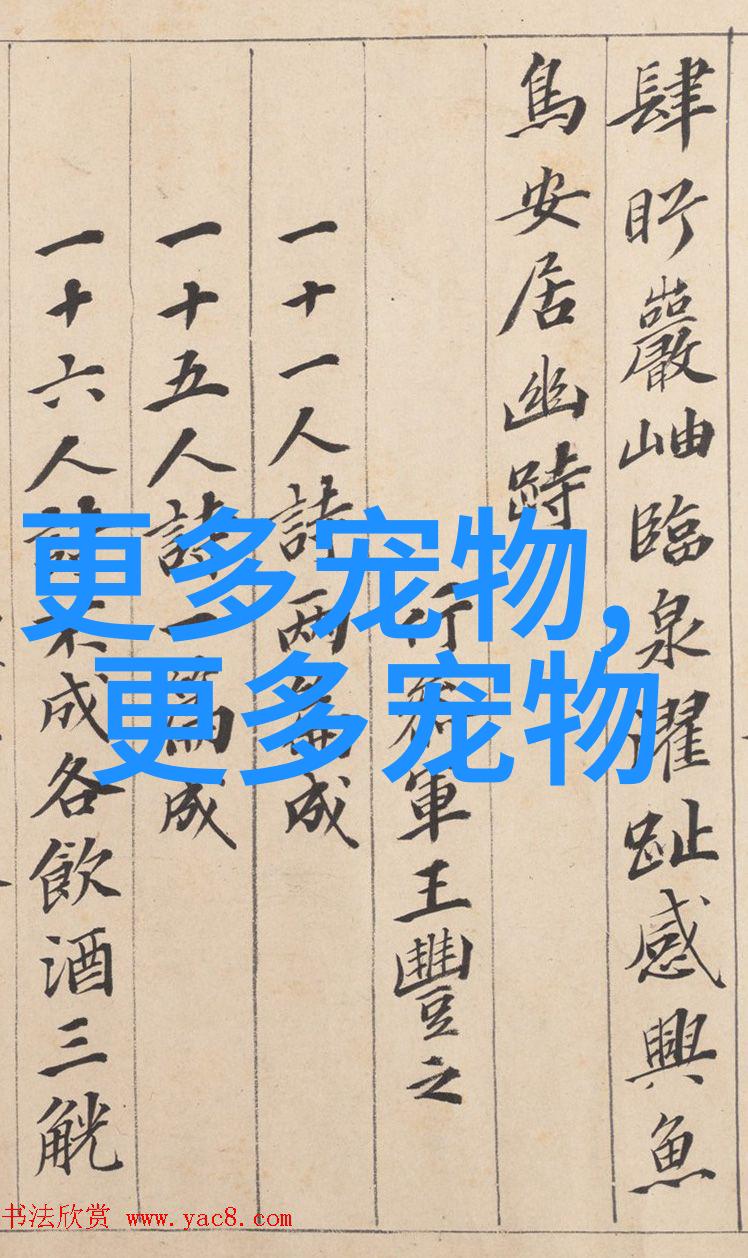 肆盱巖岫臨泉濯趾感興魚
鳥安居幽跱
行參軍王豐之
一十一人詩兩篇成
一十五人詩一篇成
一十六人詩不成各飲酒三觥
更多宠物,
更多宠物
书法欣赏 www.yac8.com